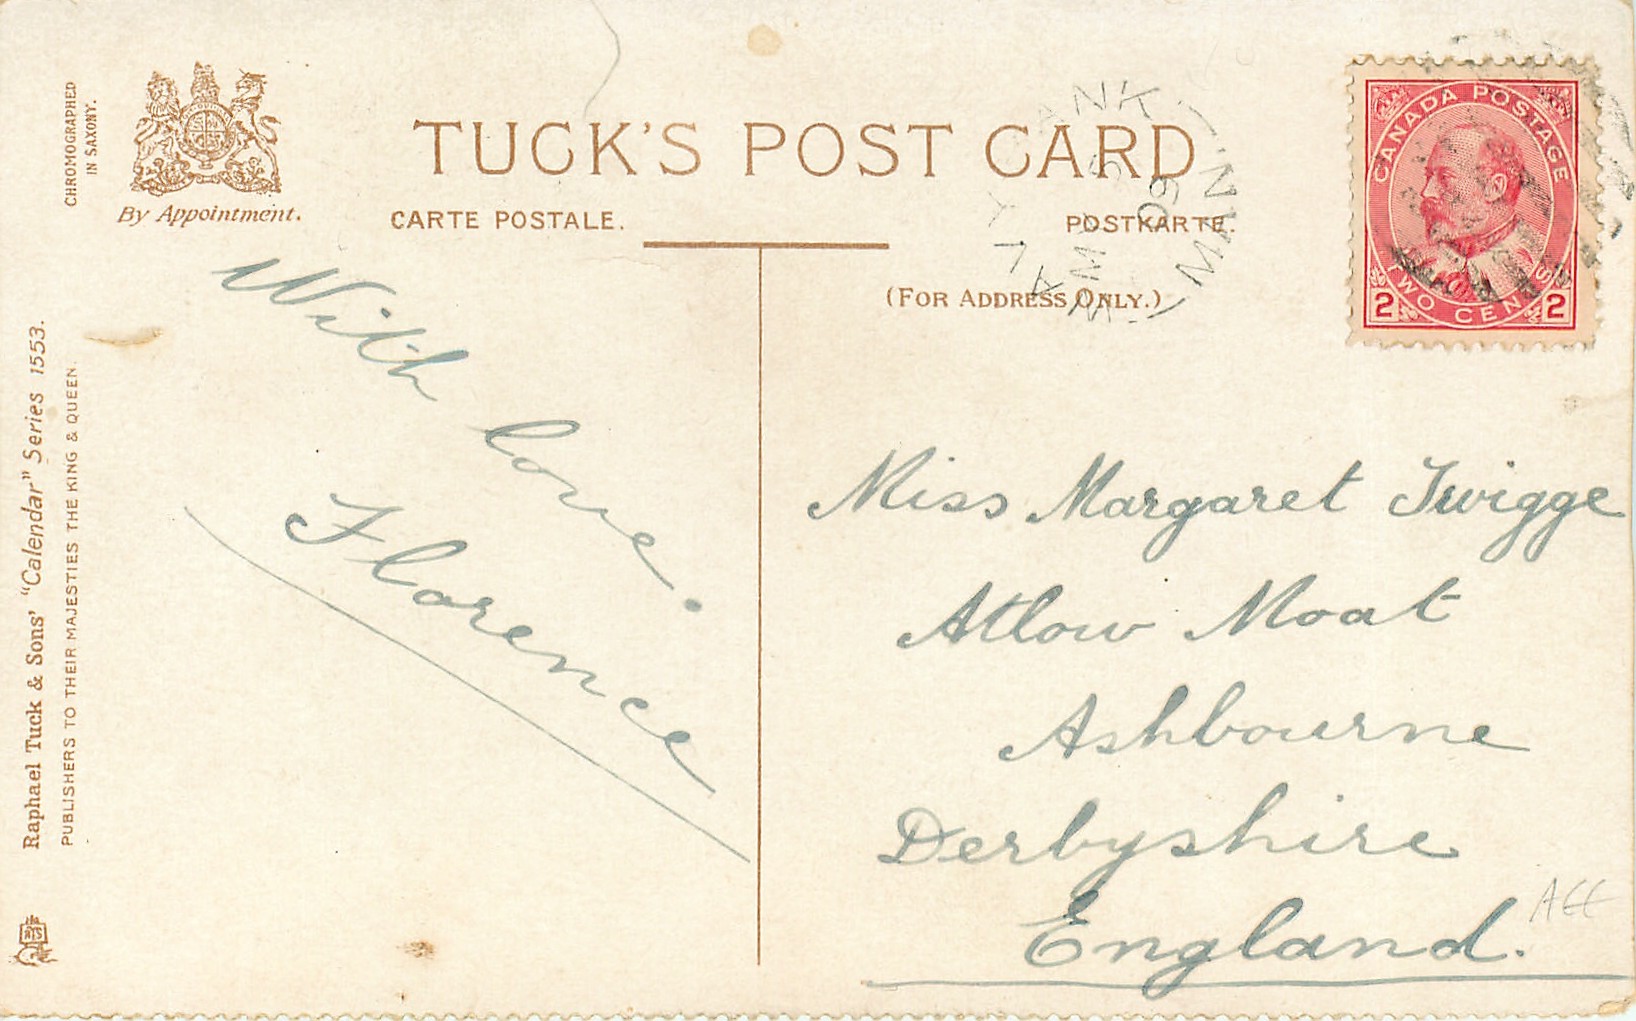 CHROMOGRAPHED
IN SAXONY.
By Appointment.
TUCK'S POST CARD
CARTE POSTALE.
POSTKARTE.
(FOR ADDRESS ONLY.)
CANADA POSTAGE
TWO CENTS
2 2
MAN.
AM
09
With love.
Florence
Miss Margaret Twigge
Atlow Moat
Ashbourne
Derbyshire
England.
Raphael Tuck & Sons' "Calendar" Series 1553.
PUBLISHERS TO THEIR MAJESTIES THE KING & QUEEN.